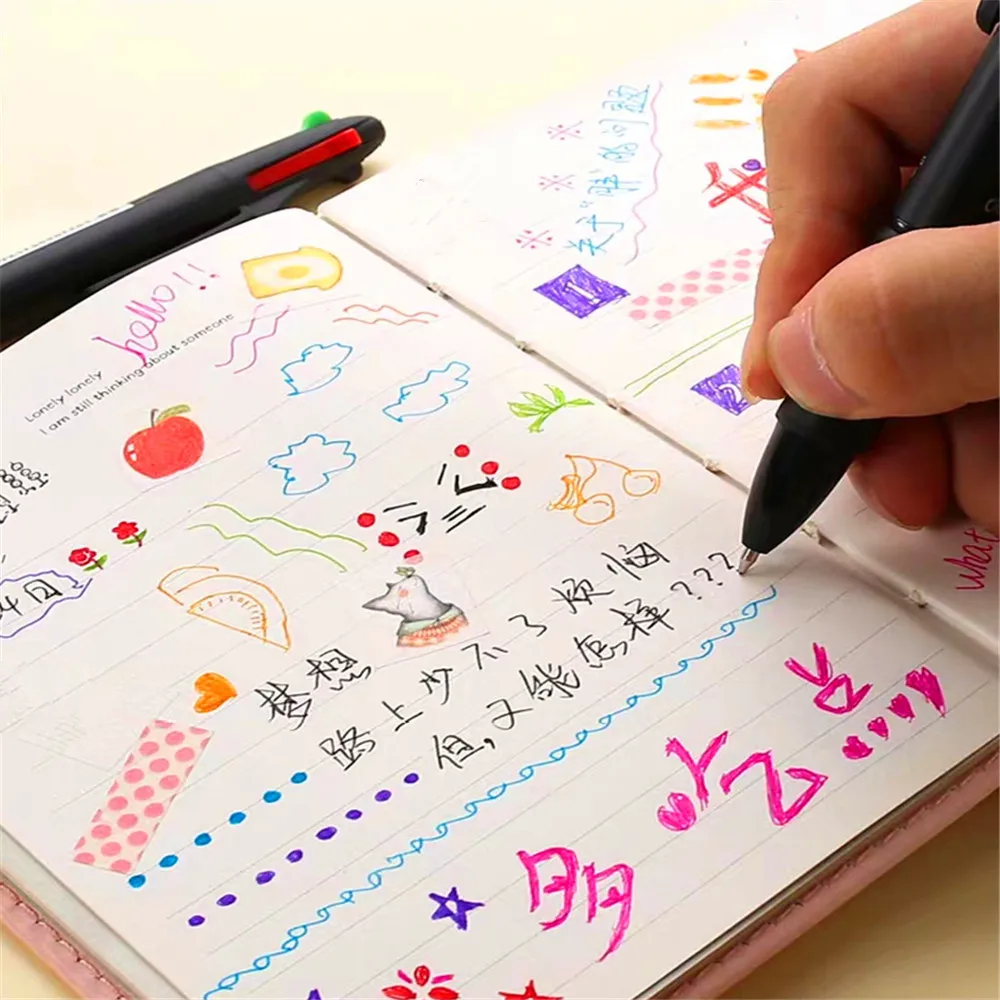 hello!!
Lonely lonely
I am still thinking about someone
4日
三
梦想
路上少不了烦恼
但,又能怎样???
多吃点
关于"解"的问题
1
2
what